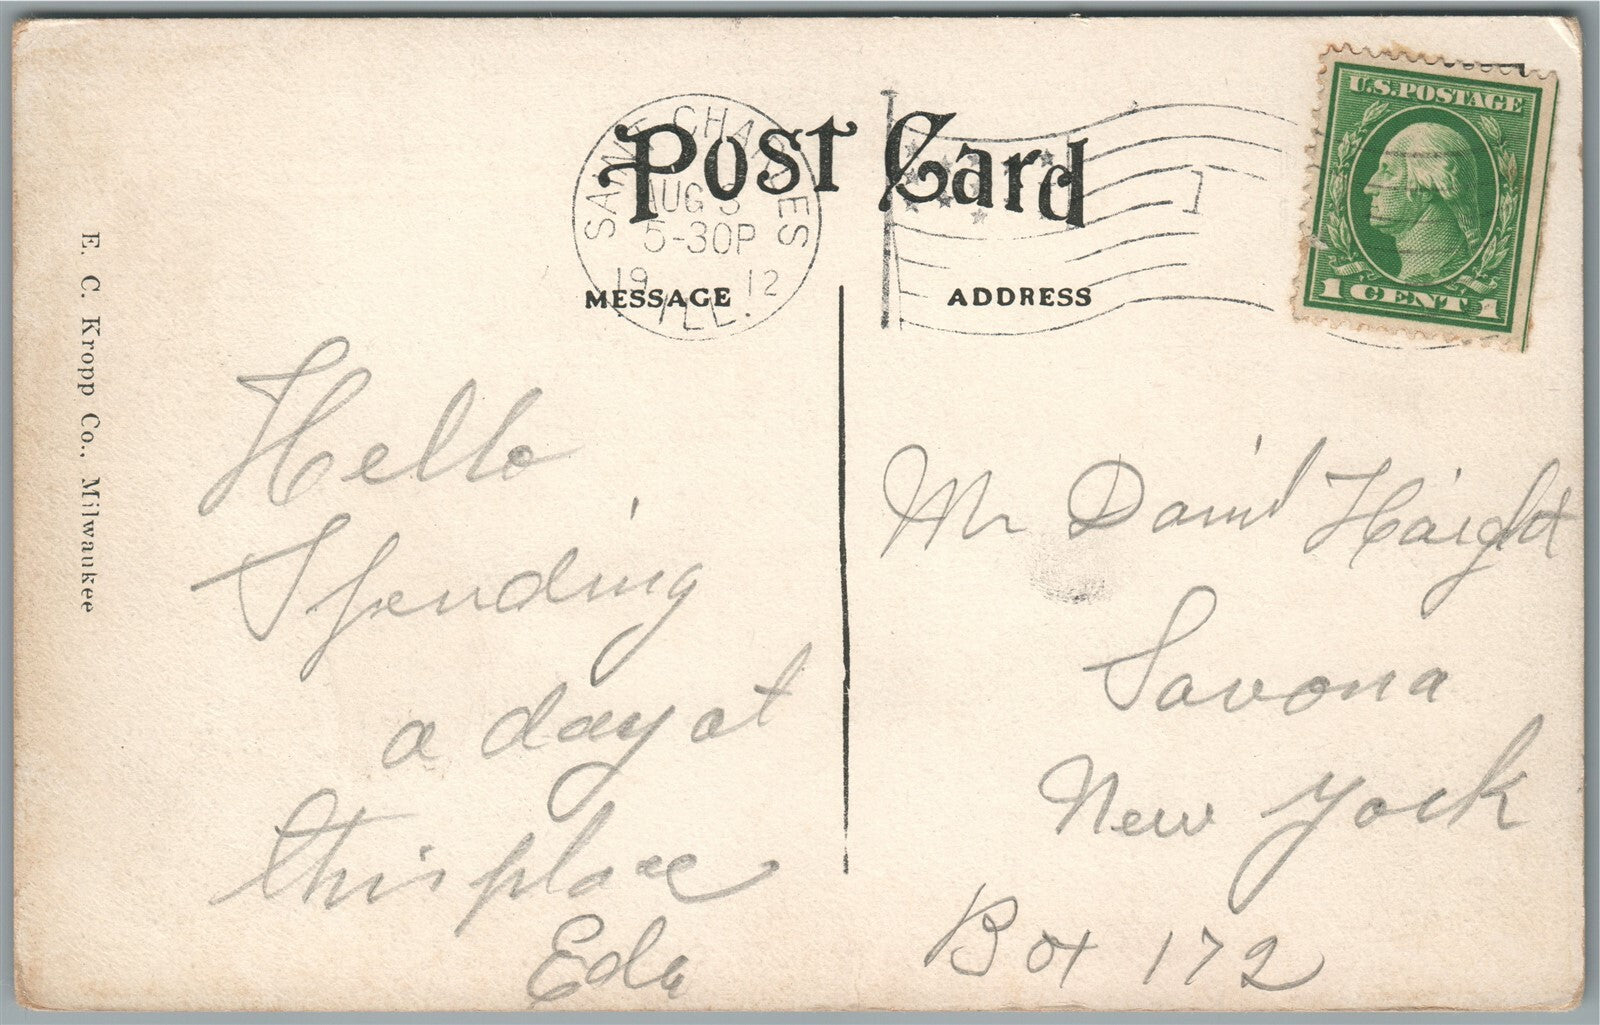 Post Card
SAINT CHARLES
AUG 3
5-30P
19 12
ILL.
U.S. POSTAGE
1 CENT 1
MESSAGE
ADDRESS
E. C. Kropp Co., Milwaukee
Hello
Spending
a day at
this place
Eda
Mr David Haight
Savona
New York
Box 172